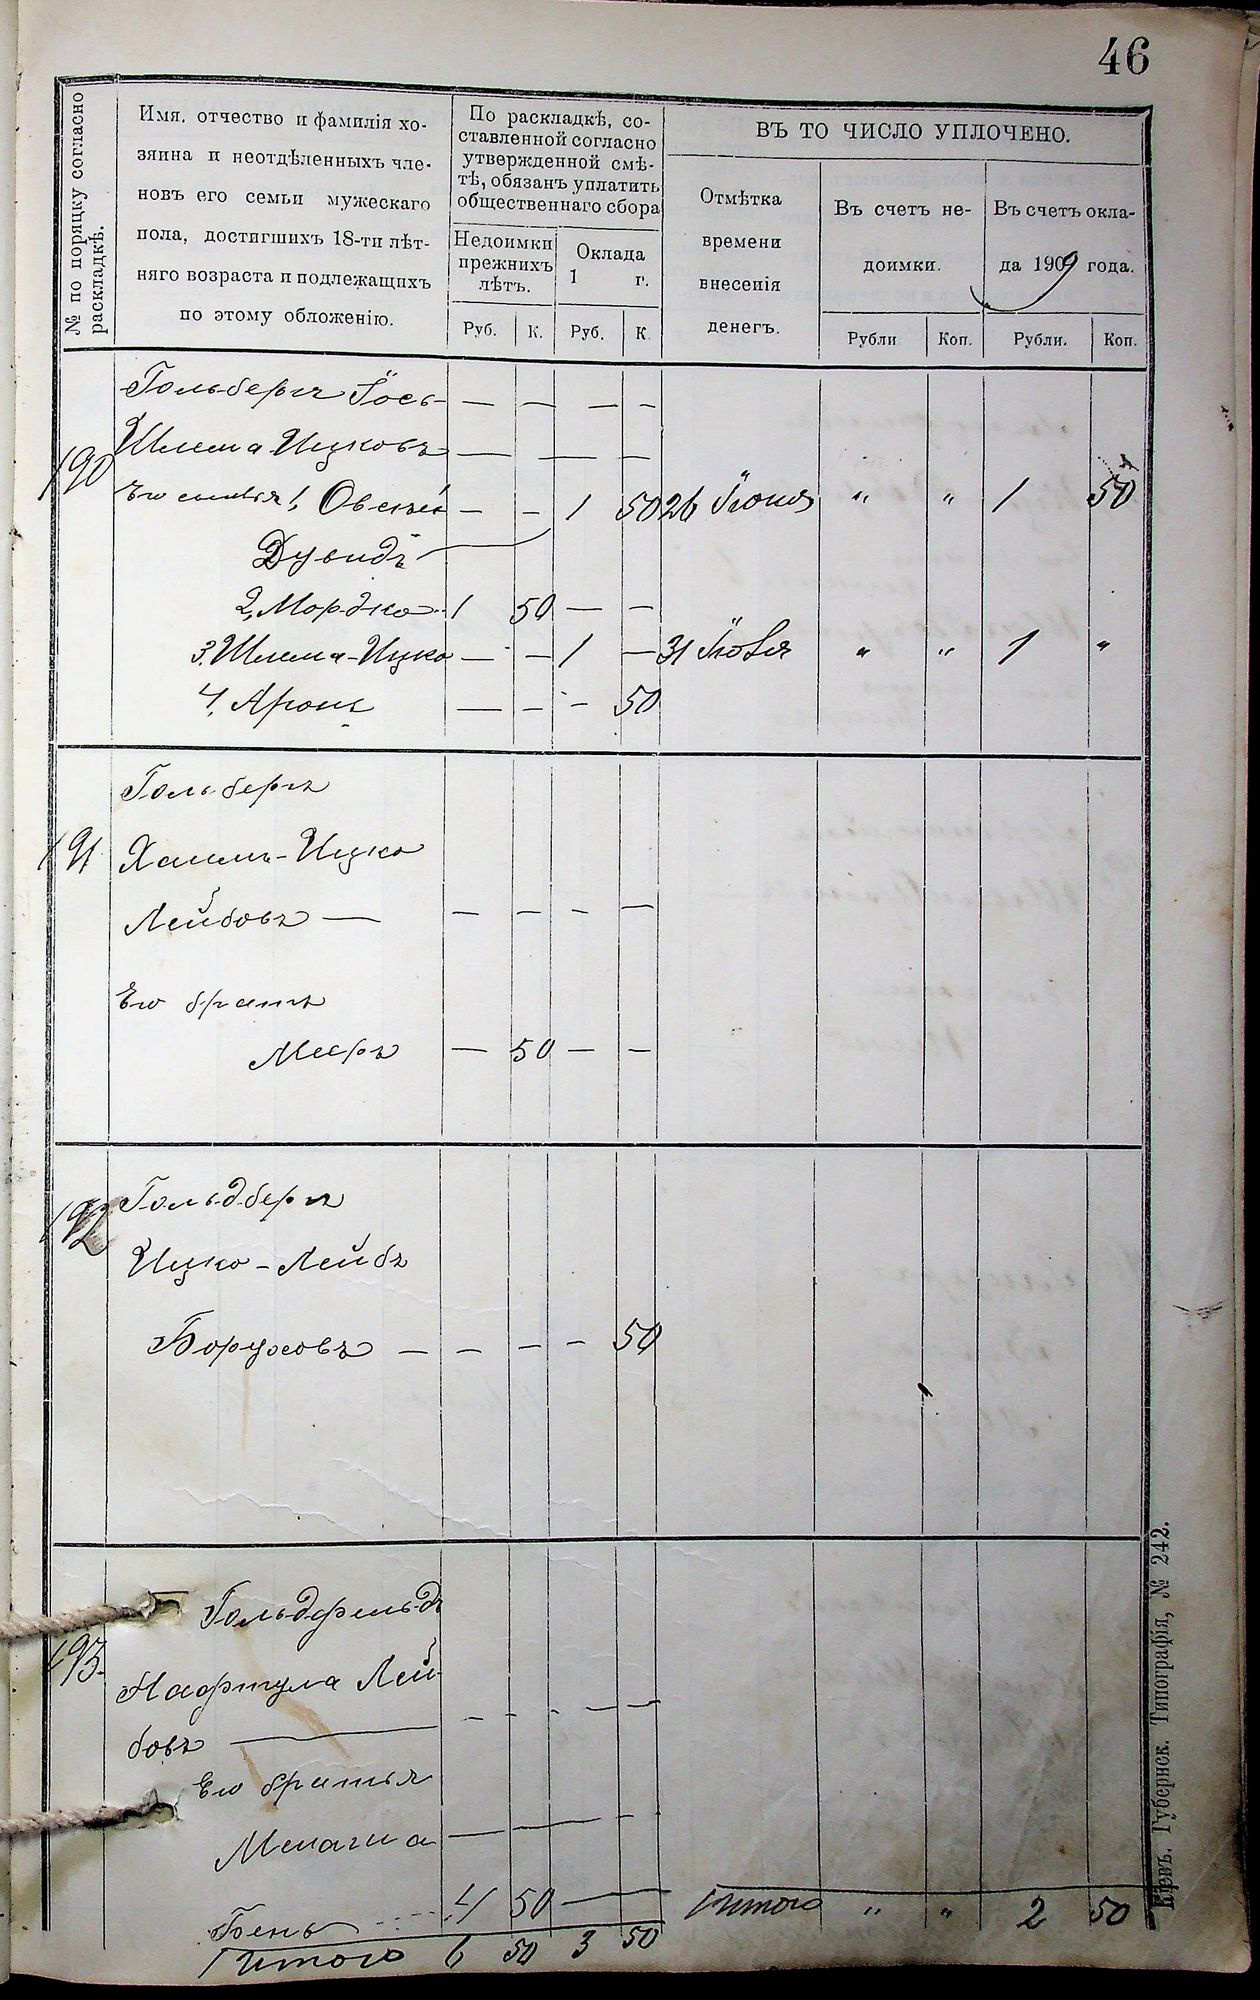 46
№ по порядку согласно раскладкѣ.
Имя, отчество и фамилія хо-
зяина и неотдѣленныхъ чле-
новъ его семьи мужескаго
пола, достигшихъ 18-ти лѣт-
няго возраста и подлежащихъ
по этому обложенію.
По раскладкѣ, со-
ставленной согласно
утвержденной смѣ-
тѣ, обязанъ уплатить
общественнаго сбора
Недоимки
прежнихъ
лѣтъ.
Оклада
1 г.
Руб. К. Руб. К.
ВЪ ТО ЧИСЛО УПЛОЧЕНО.
Отмѣтка
времени
внесенія
денегъ.
Въ счетъ не-
доимки.
Въ счетъ окла-
да 1909 года.
Рубли Коп. Рубли. Коп.
Гольберг Іось- — — — —
190 Шлема Ицковъ — — —
Его сыновья 1, Овсей — — 1 50 26 Іюня " " 1 50
Дувидъ
2, Мордко 1 50 — —
3. Шлема-Ицко — — 1 — 31 Іюля " " 1 "
4, Аронъ — — — 50
Гольбергъ
191 Хаимъ-Ицко
Лейбовъ — — — — —
Его братъ
Мееръ — 50 — —
192 Гольдбергъ
Ицко-Лейбъ
Боруховъ — — — — 50
Гольдфельдъ
193. Нафтула Лей-
бовъ — — — — —
Его братья
— — — —
Бень 4 50 — —
Итого 6 50 3 50
Итого " " 2 50
Кіевъ. Губернск. Типографія, № 242.